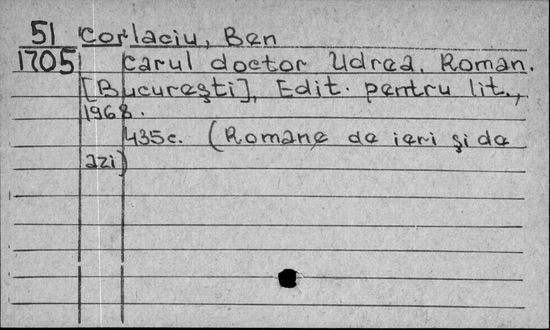 51 Corlaciu, Ben
1705 Carul doctor Udrea. Roman.
[Bucureşti], Edit. pentru lit.,
1968.
435c. (Romane de ieri şi de
azi)